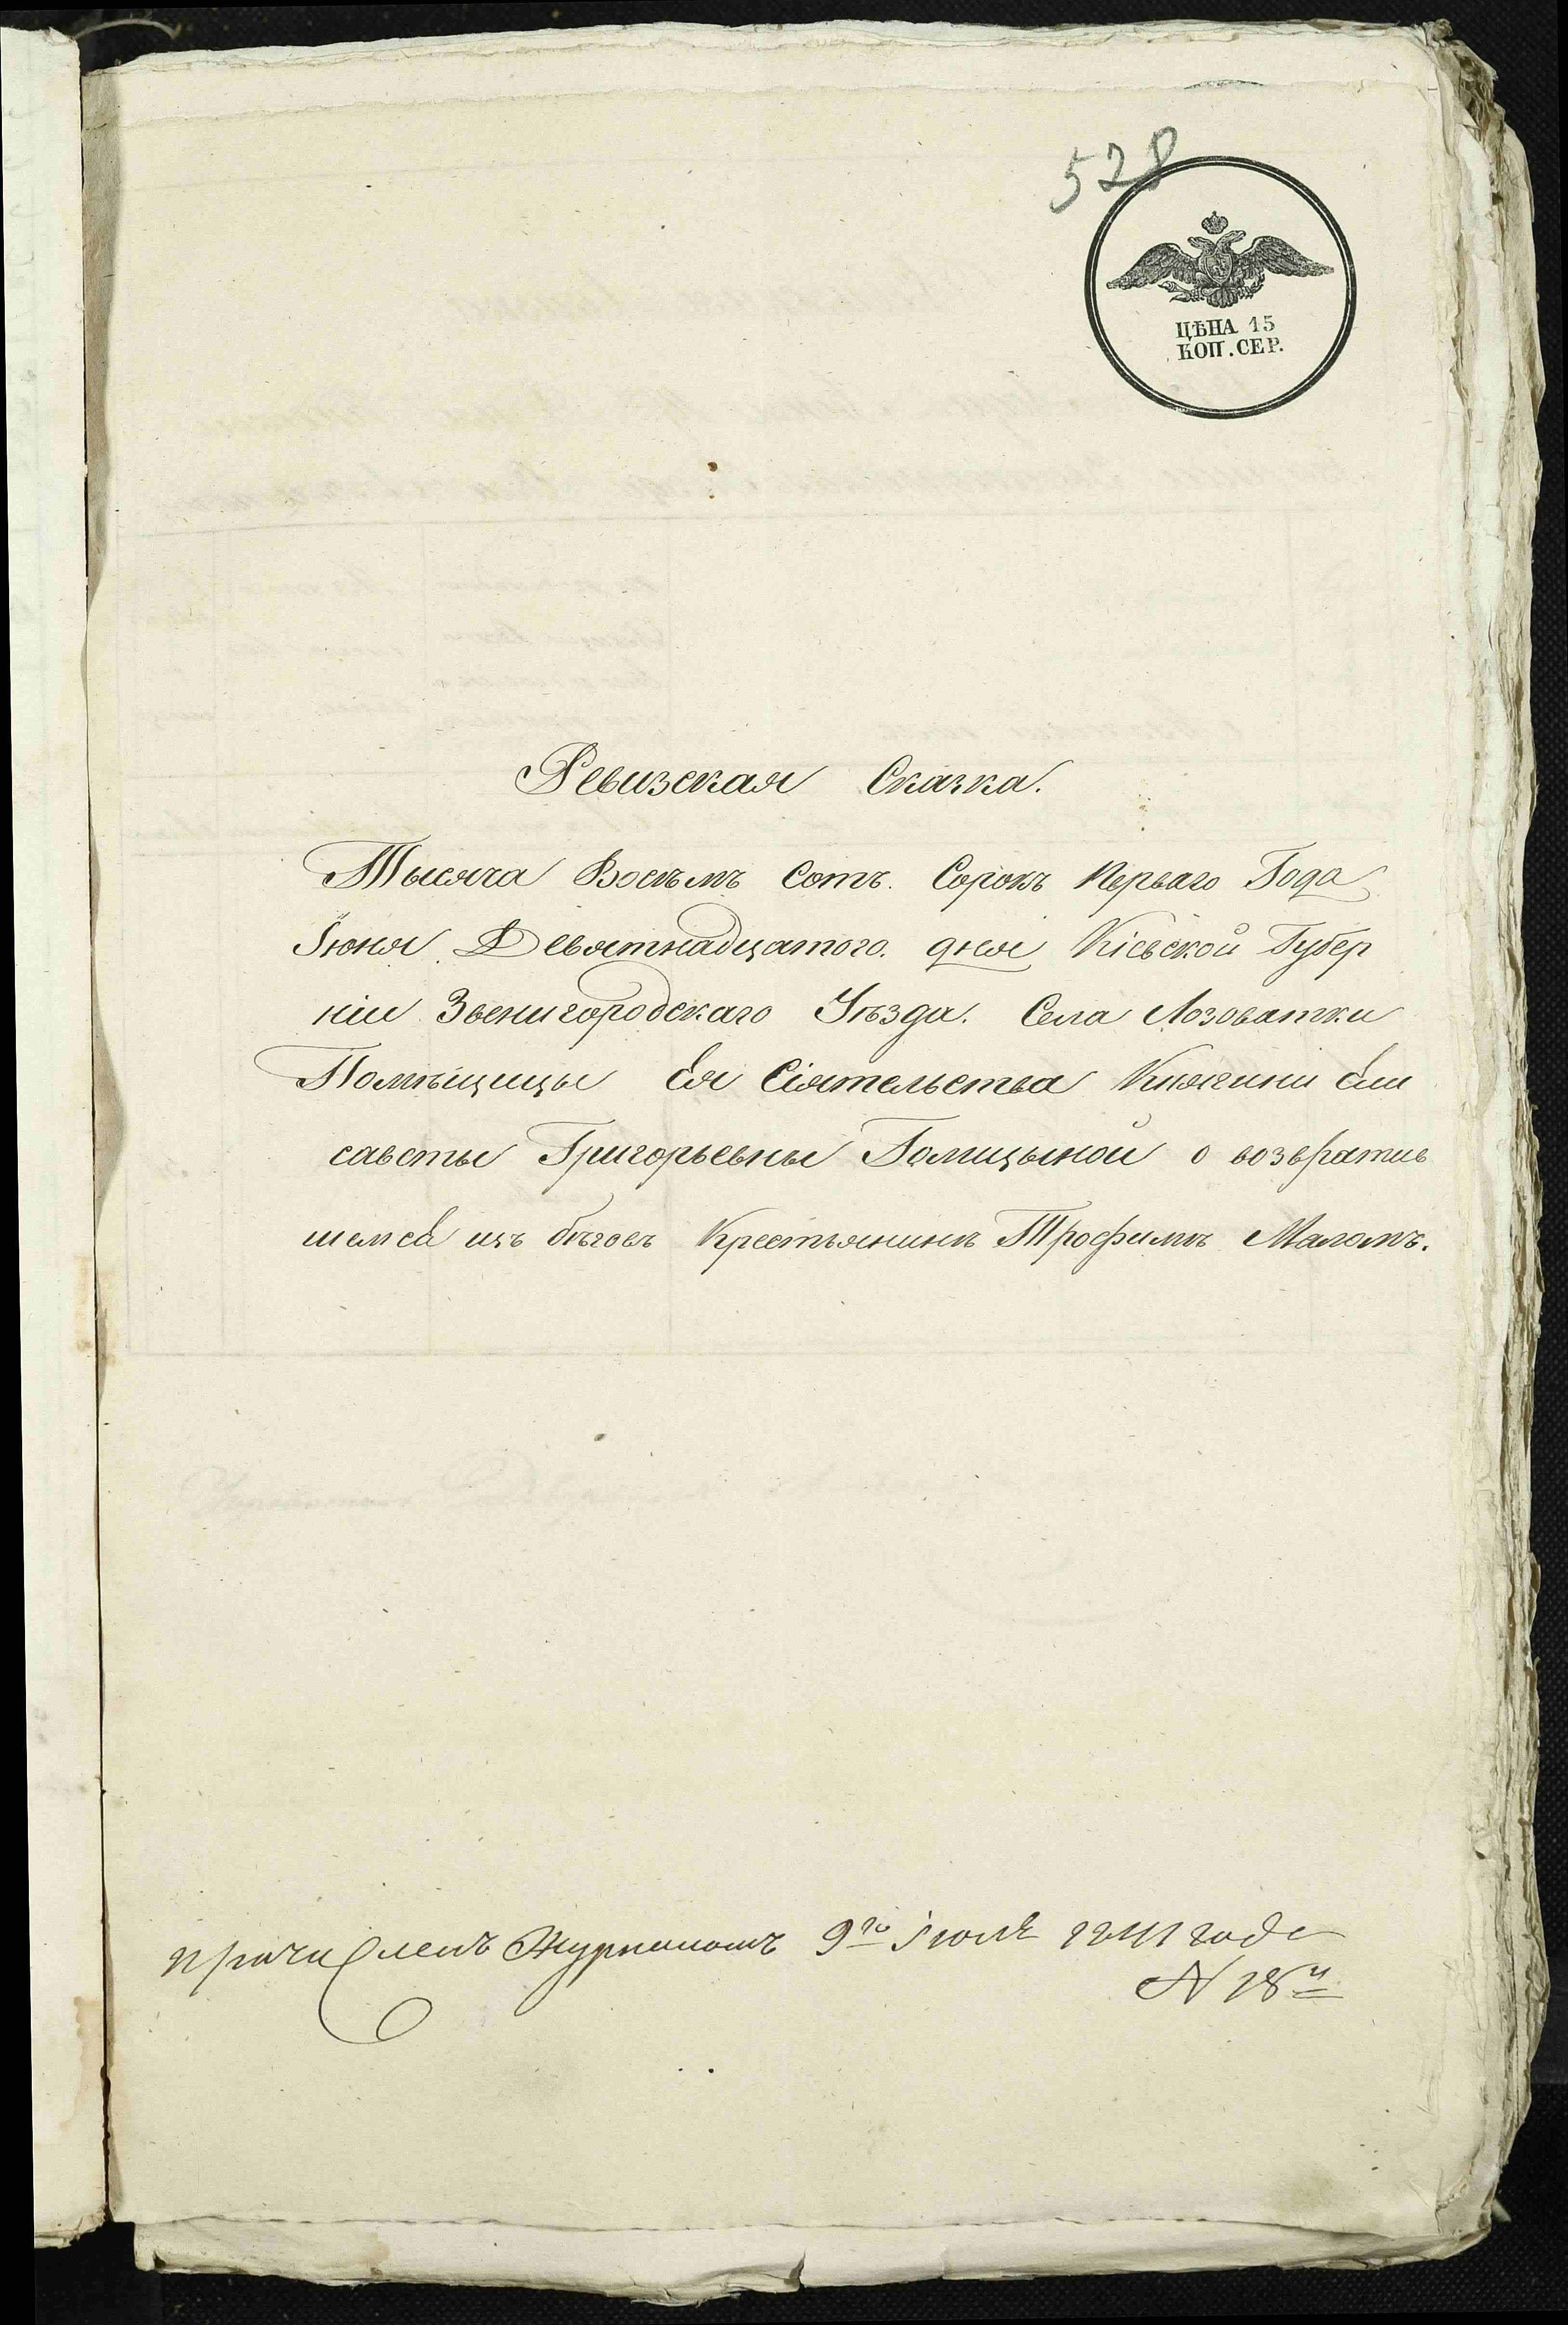 528
ЦѢНА 15
КОП. СЕР.
Ревизская Сказка.
Тысяча Восѣмъ Сотъ. Сорокъ Перваго Года
Іюня Девятнадцатого. дня Кіевской Губер
ніи Звенигородскаго Уѣзда. Села Лозоватки
Помѣщицы Ея Сіятельства Княгини Ели
саветы Григорьевны Голицыной о возвратив
шемся изъ бѣговъ Крестьянинѣ Трофимѣ Маломъ.
причисленъ Журналомъ 9го Іюля 1841 года
N 18й